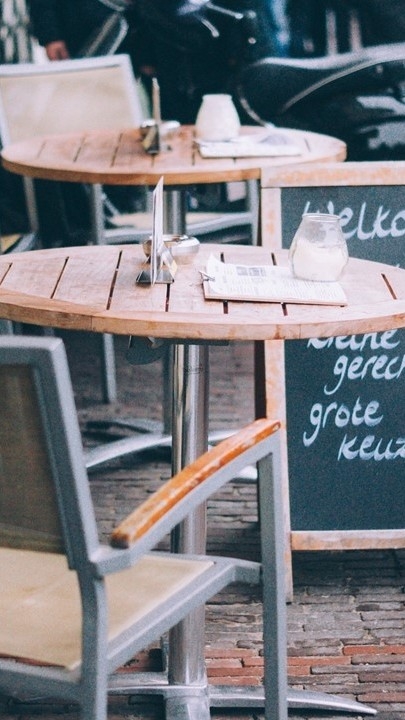 Welko
kleine
gerech
grote
keuz